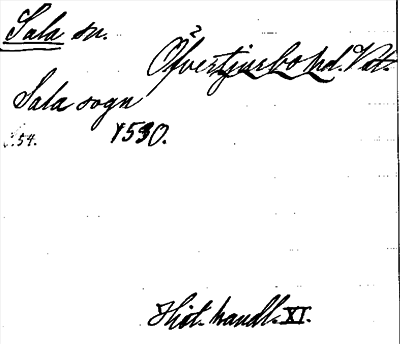 Sala sn.
Öfvertjurbo hd. Vstm.
Sala sogn
S. 54. 1530.
Hist. handl. XI.